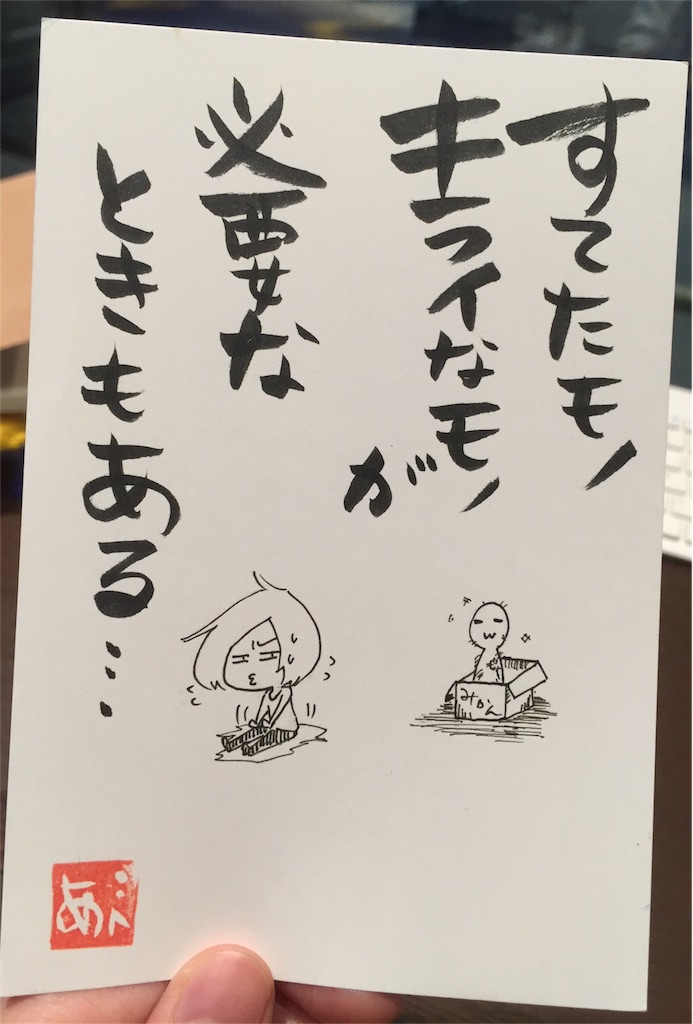 すてたモノ
キライなモノ
が
必要な
ときもある…
みかん